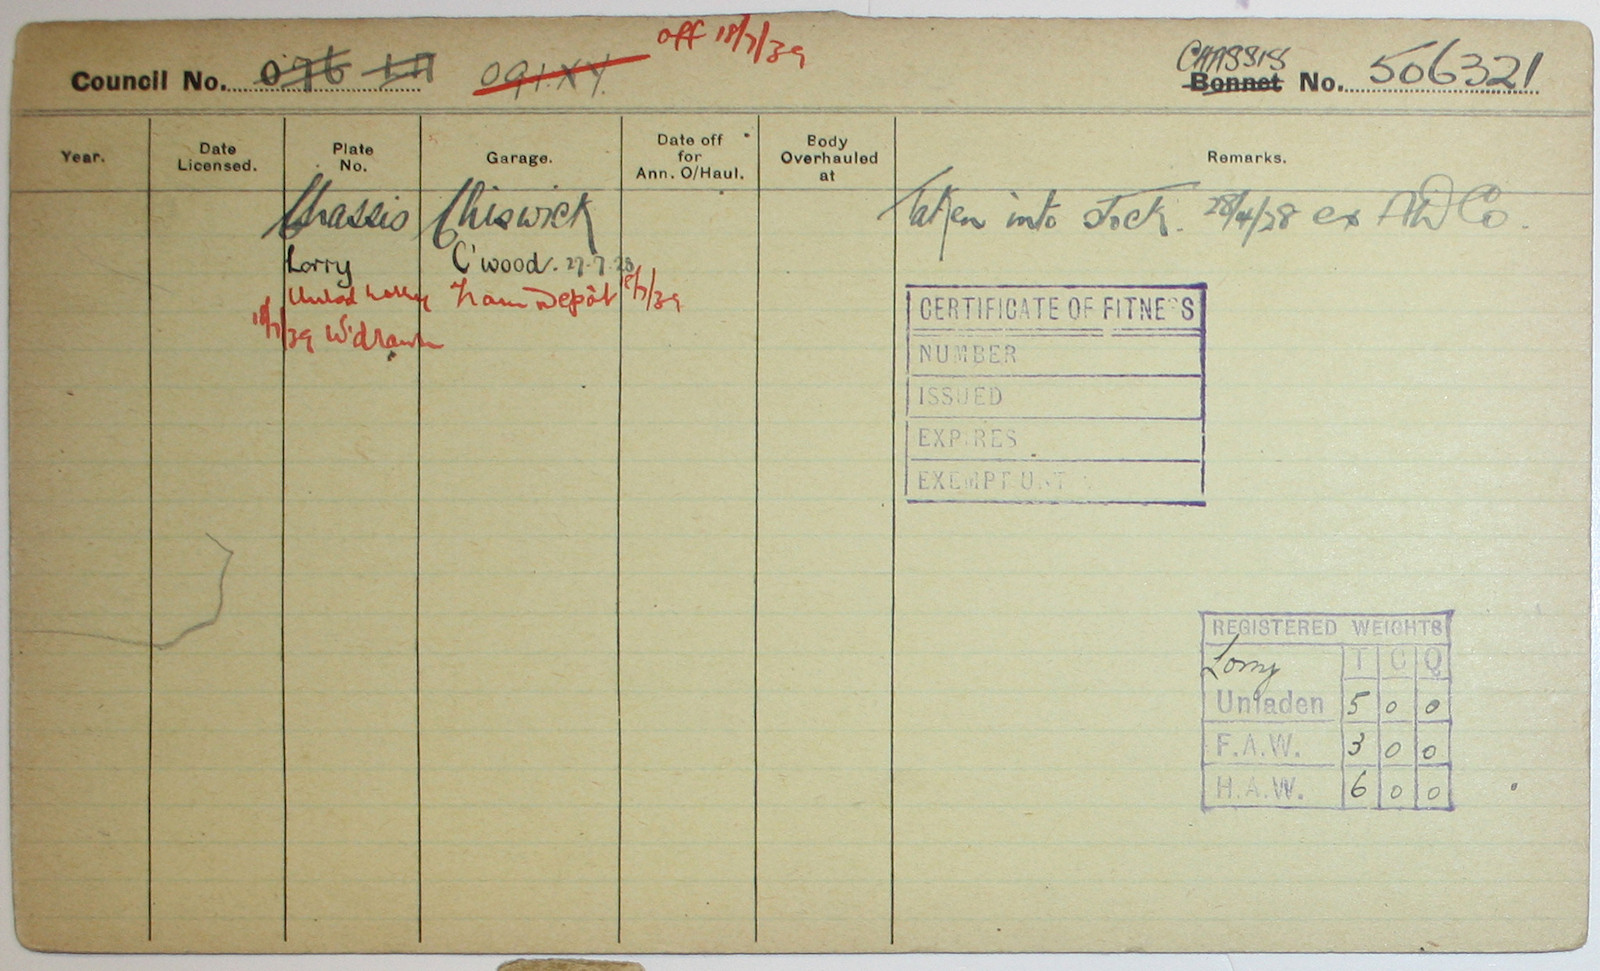 off 18/7/39
Council No. 076 LH 091.XY.
CHASSIS
Bonnet No. 506321
Year. Date Licensed. Plate No. Garage. Date off for Ann. O/Haul. Body Overhauled at Remarks.
Chassis Chiswick Taken into stock. 28/4/28 ex ADCo.
Lorry C'wood. 27.7.28
Tram Depôt 18/7/39
18/7/39 W'drawn
CERTIFICATE OF FITNESS
NUMBER
ISSUED
EXPIRES
EXEMPT UNT
REGISTERED WEIGHTS
Lorry T C Q
Unladen 5 0 0
F.A.W. 3 0 0
H.A.W. 6 0 0